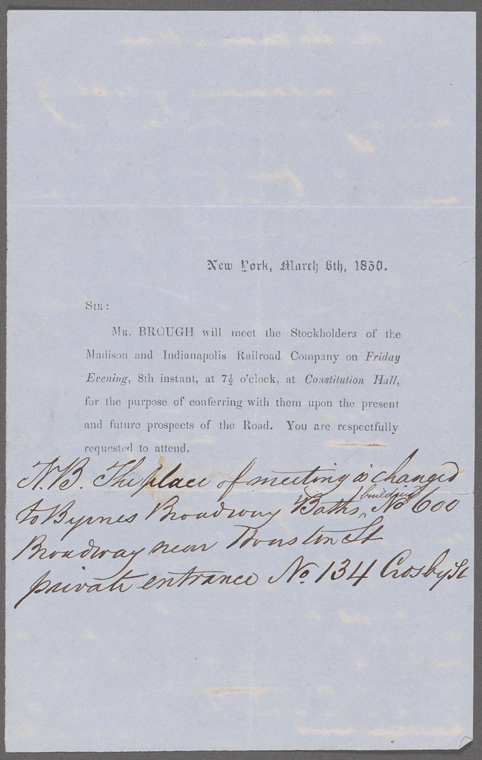 New York, March 6th, 1850.
Sir:
Mr. BROUGH will meet the Stockholders of the
Madison and Indianapolis Railroad Company on Friday
Evening, 8th instant, at 7½ o'clock, at Constitution Hall,
for the purpose of conferring with them upon the present
and future prospects of the Road. You are respectfully
requested to attend.
N.B. The place of meeting is changed
to Byrnes Broadway Baths building, No 600
Broadway near Houston St
private entrance No. 134 Crosby St